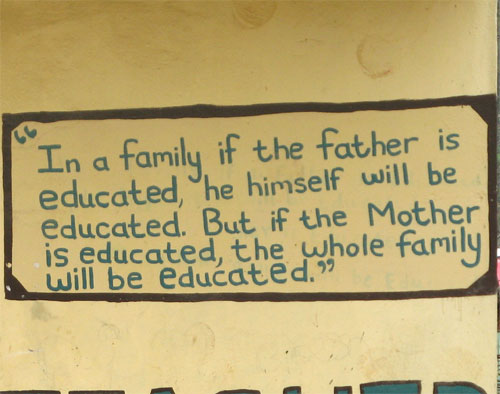 “In a family if the father is
educated, he himself will be
educated. But if the Mother
is educated, the whole family
will be educated.”